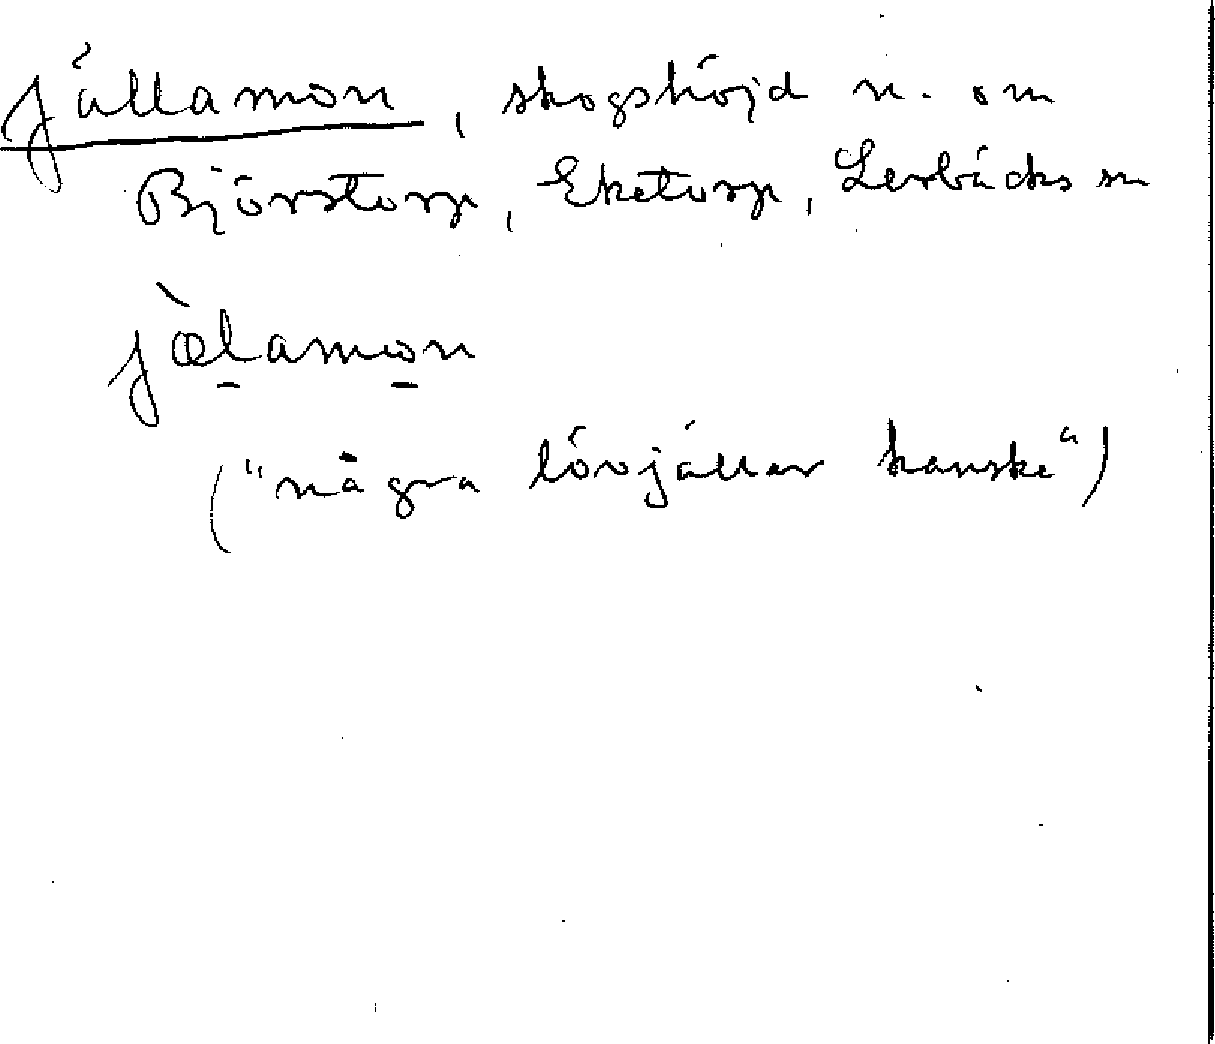 Jällamon, skogshöjd n. om
Björstorp, Eketorp, Lerbäcks sn
jæ̀lamon
("några lövjällar kanske")